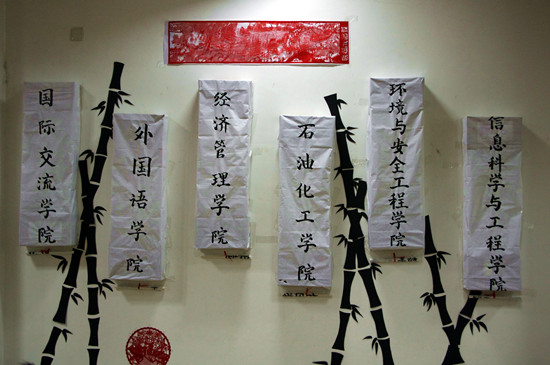 国际交流学院
外国语学院
经济管理学院
石油化工学院
环境与安全工程学院
信息科学与工程学院